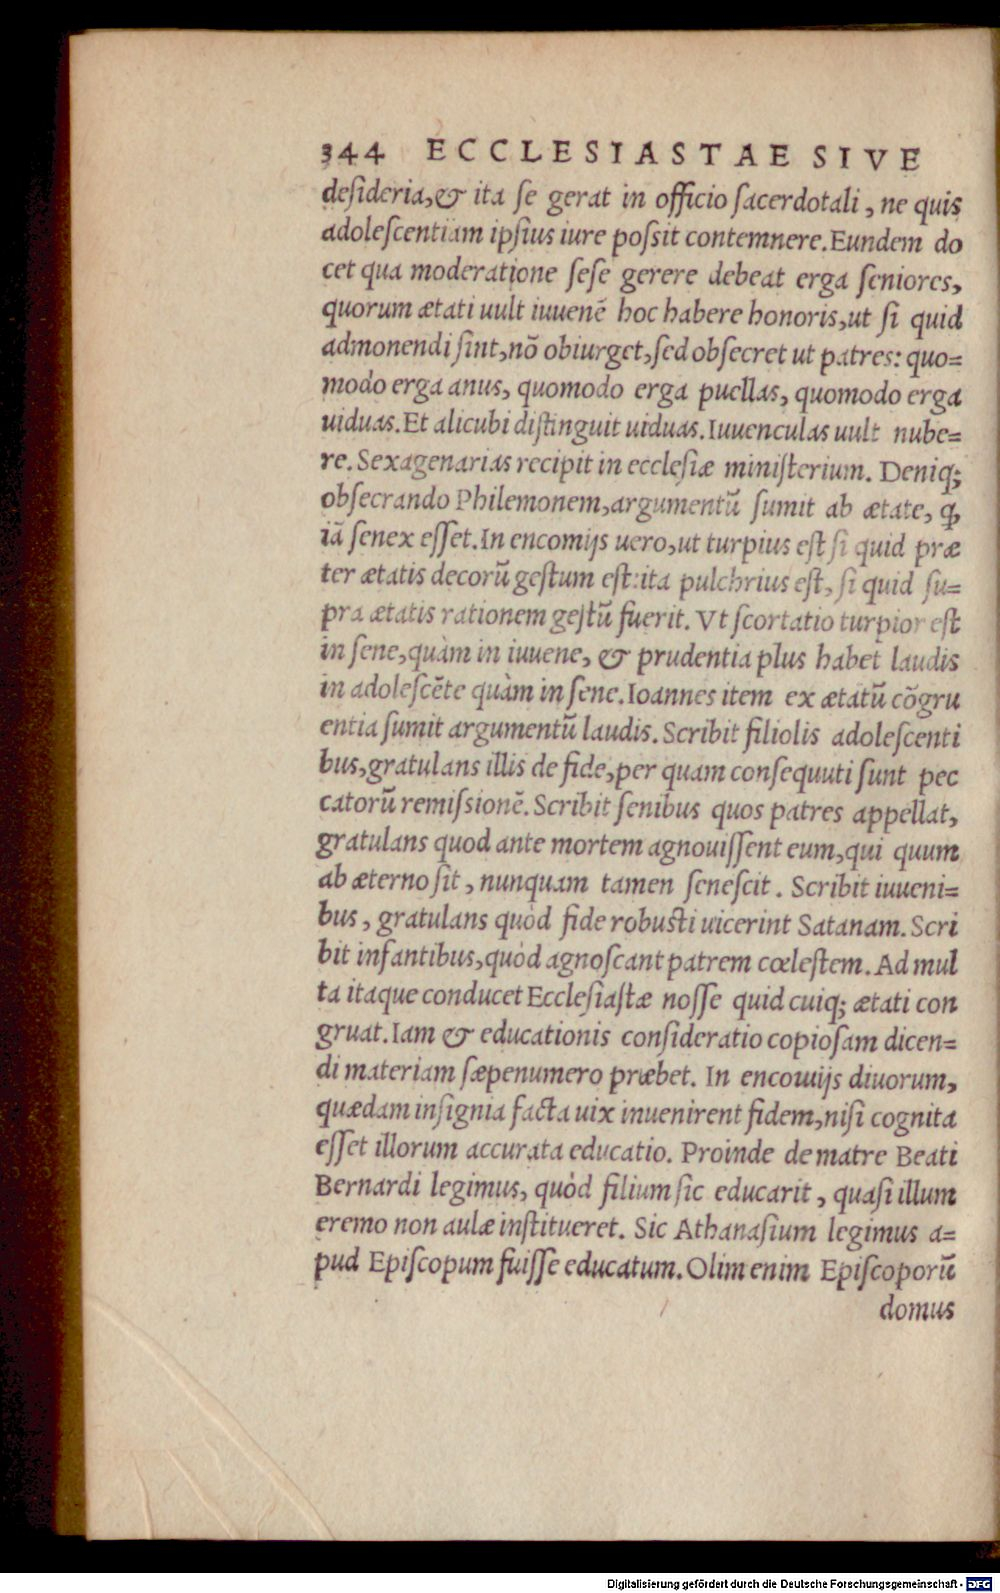 344 ECCLESIASTAE SIVE
deſideria,& ita ſe gerat in officio ſacerdotali, ne quis
adoleſcentiam ipſius iure poſsit contemnere. Eundem do
cet qua moderatione ſeſe gerere debeat erga ſeniores,
quorum ætati uult iuuenē hoc habere honoris,ut ſi quid
admonendi ſint,nō obiurget,ſed obſecret ut patres: quo=
modo erga anus, quomodo erga puellas, quomodo erga
uiduas. Et alicubi diſtinguit uiduas. Iuuenculas uult nube=
re. Sexagenarias recipit in eccleſiæ miniſterium. Deniq;
obſecrando Philemonem,argumentū ſumit ab ætate, ꝙ
iā ſenex eſſet. In encomijs uero,ut turpius eſt ſi quid præ
ter ætatis decorū geſtum eſt:ita pulchrius eſt, ſi quid ſu=
pra ætatis rationem geſtū fuerit. Vt ſcortatio turpior eſt
in ſene,quàm in iuuene, & prudentia plus habet laudis
in adoleſcēte quàm in ſene. Ioannes item ex ætatū cōgru
entia ſumit argumentū laudis. Scribit filiolis adoleſcenti
bus,gratulans illis de fide,per quam conſequuti ſunt pec
catorū remiſsionē. Scribit ſenibus quos patres appellat,
gratulans quod ante mortem agnouiſſent eum,qui quum
ab æterno ſit, nunquam tamen ſeneſcit. Scribit iuueni=
bus, gratulans quòd fide robusti uicerint Satanam. Scri
bit infantibus,quòd agnoſcant patrem cœleſtem. Ad mul
ta itaque conducet Eccleſiaſtæ noſſe quid cuiq; ætati con
gruat. Iam & educationis conſideratio copioſam dicen=
di materiam ſæpenumero præbet. In encomijs diuorum,
quædam inſignia facta uix inuenirent fidem,niſi cognita
eſſet illorum accurata educatio. Proinde de matre Beati
Bernardi legimus, quòd filium ſic educarit, quaſi illum
eremo non aulæ inſtitueret. Sic Athanaſium legimus a=
pud Epiſcopum fuiſſe educatum. Olim enim Epiſcoporū
domus
Digitalisierung gefördert durch die Deutsche Forschungsgemeinschaft - DFG